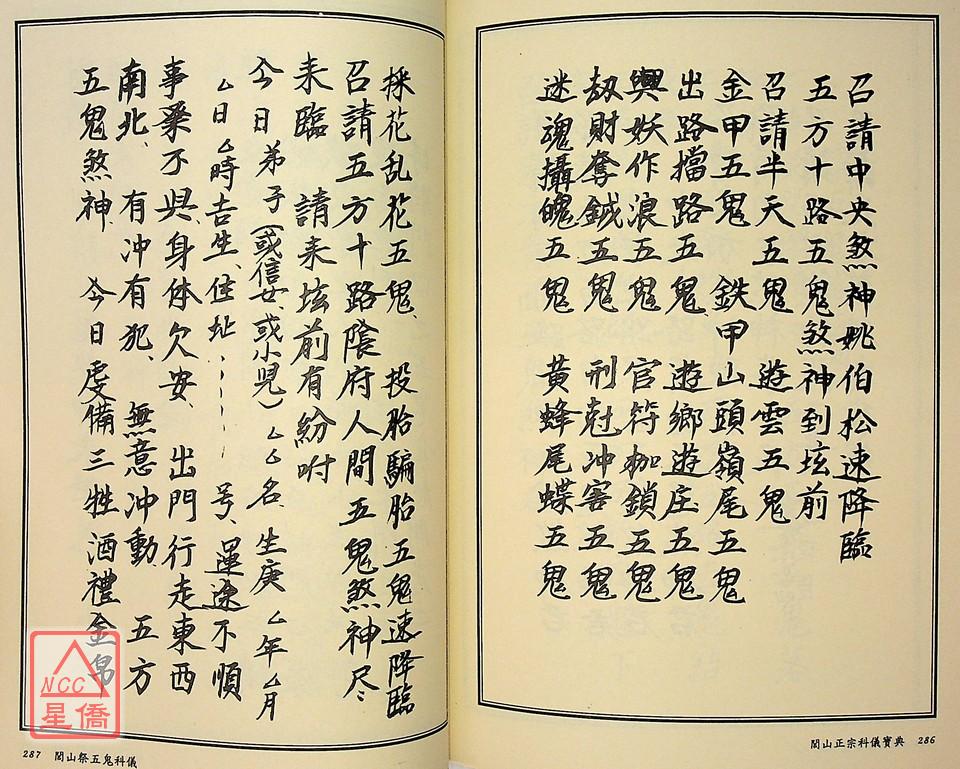 召請中央煞神姚伯松速降臨
五方十路五鬼煞神到坛前
召請半天五鬼 遊雲五鬼
金甲五鬼 鉄甲山頭嶺尾五鬼
出路擋路五鬼 遊鄉遊庄五鬼
興妖作浪五鬼 官符枷鎖五鬼
刼財奪鉞五鬼 刑尅冲害五鬼
迷魂攝魄五鬼 黄蜂尾蝶五鬼
閭山正宗科儀寶典 286
採花乱花五鬼、 投胎騙胎五鬼速降臨
召請五方十路陰府人間五鬼煞神尽、
来臨 請来坛前有紛咐
今日弟子(或信女、或小児)厶厶名、生庚厶年厶月
厶日厶時吉生、住址、、、、、、号、運途不順
事業不興身体欠安、 出門行走東西
南北、有冲有犯、 無意冲動 五方
五鬼煞神 今日虔備三牲酒禮金帛
287 閭山祭五鬼科儀
NCC
星僑